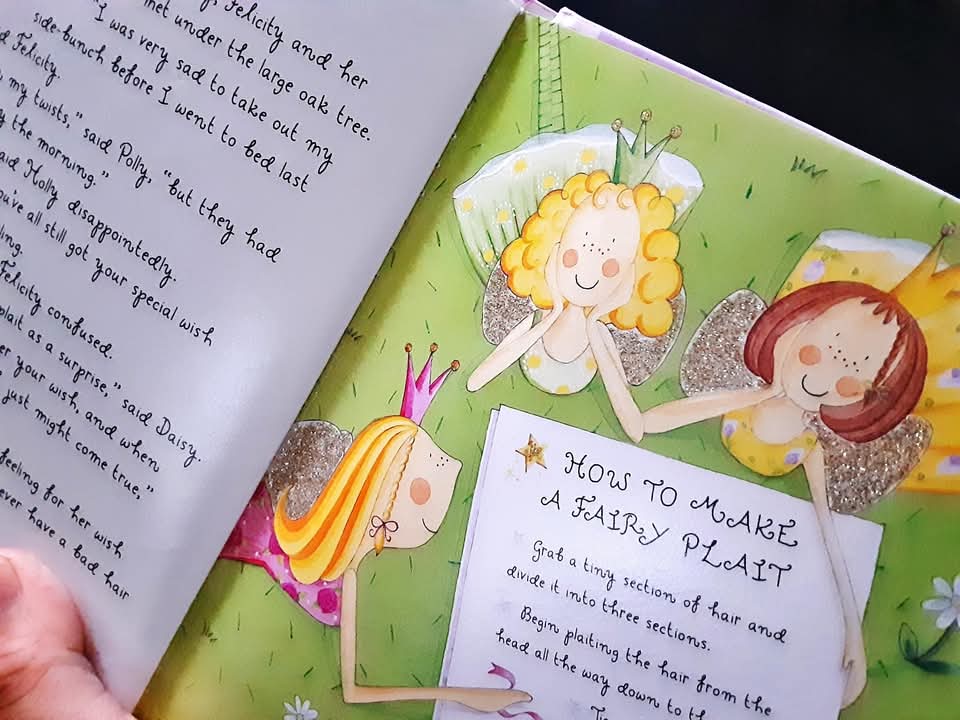 Felicity and her
met under the large oak tree.
"I was very sad to take out my
side-bunch before I went to bed last
Felicity.
my twists," said Polly, "but they had
the morning."
said Holly disappointedly.
you've all still got your special wish
Felicity confused.
plait as a surprise," said Daisy.
your wish, and when
just might come true,"
feeling for her wish
ever have a bad hair
HOW TO MAKE
A FAIRY PLAIT
Grab a tiny section of hair and
divide it into three sections.
Begin plaiting the hair from the
head all the way down to the